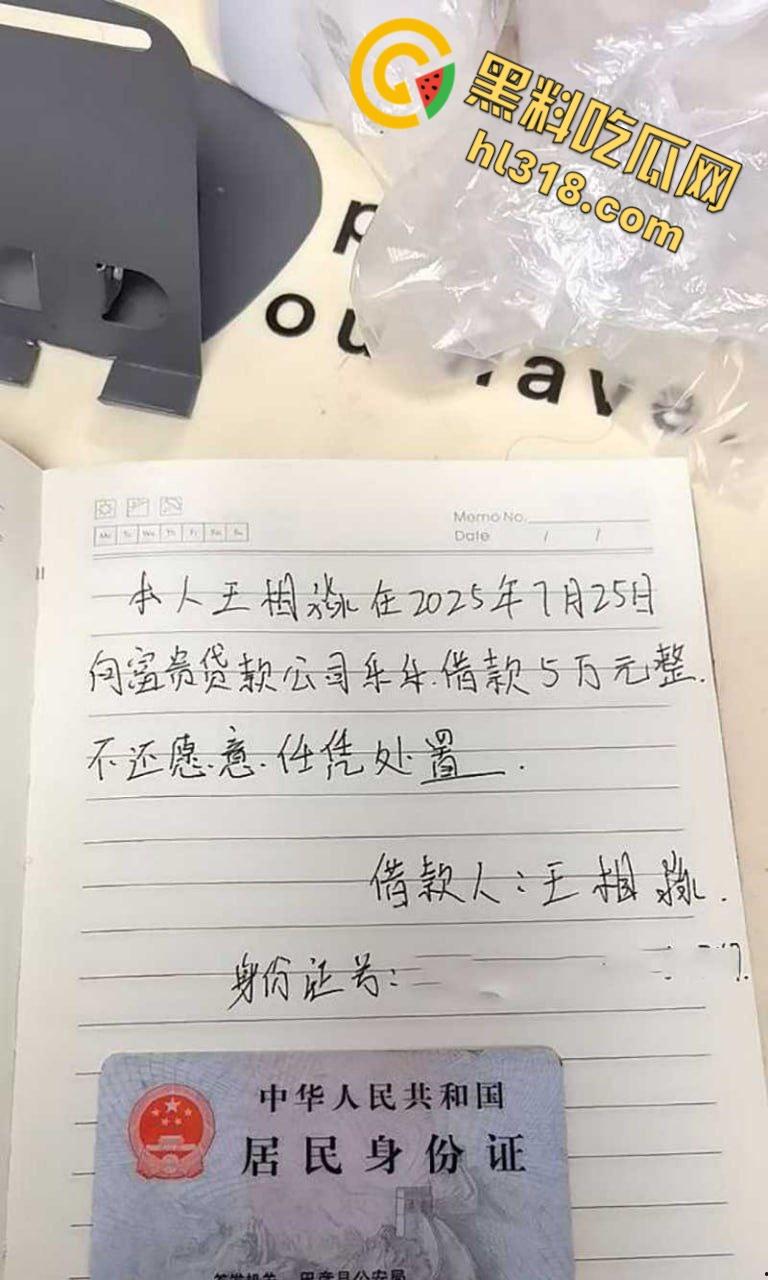 黑料吃瓜网
hl318.com
ou
ave
Memo No.
Date / /
Mo Tu We Th Fr Sa Su
本人王相淼在2025年7月25日
向富贵贷款公司乐乐.借款5万元整.
不还愿意.任凭处置.
借款人:王相淼.
身份证号:
中华人民共和国
居民身份证